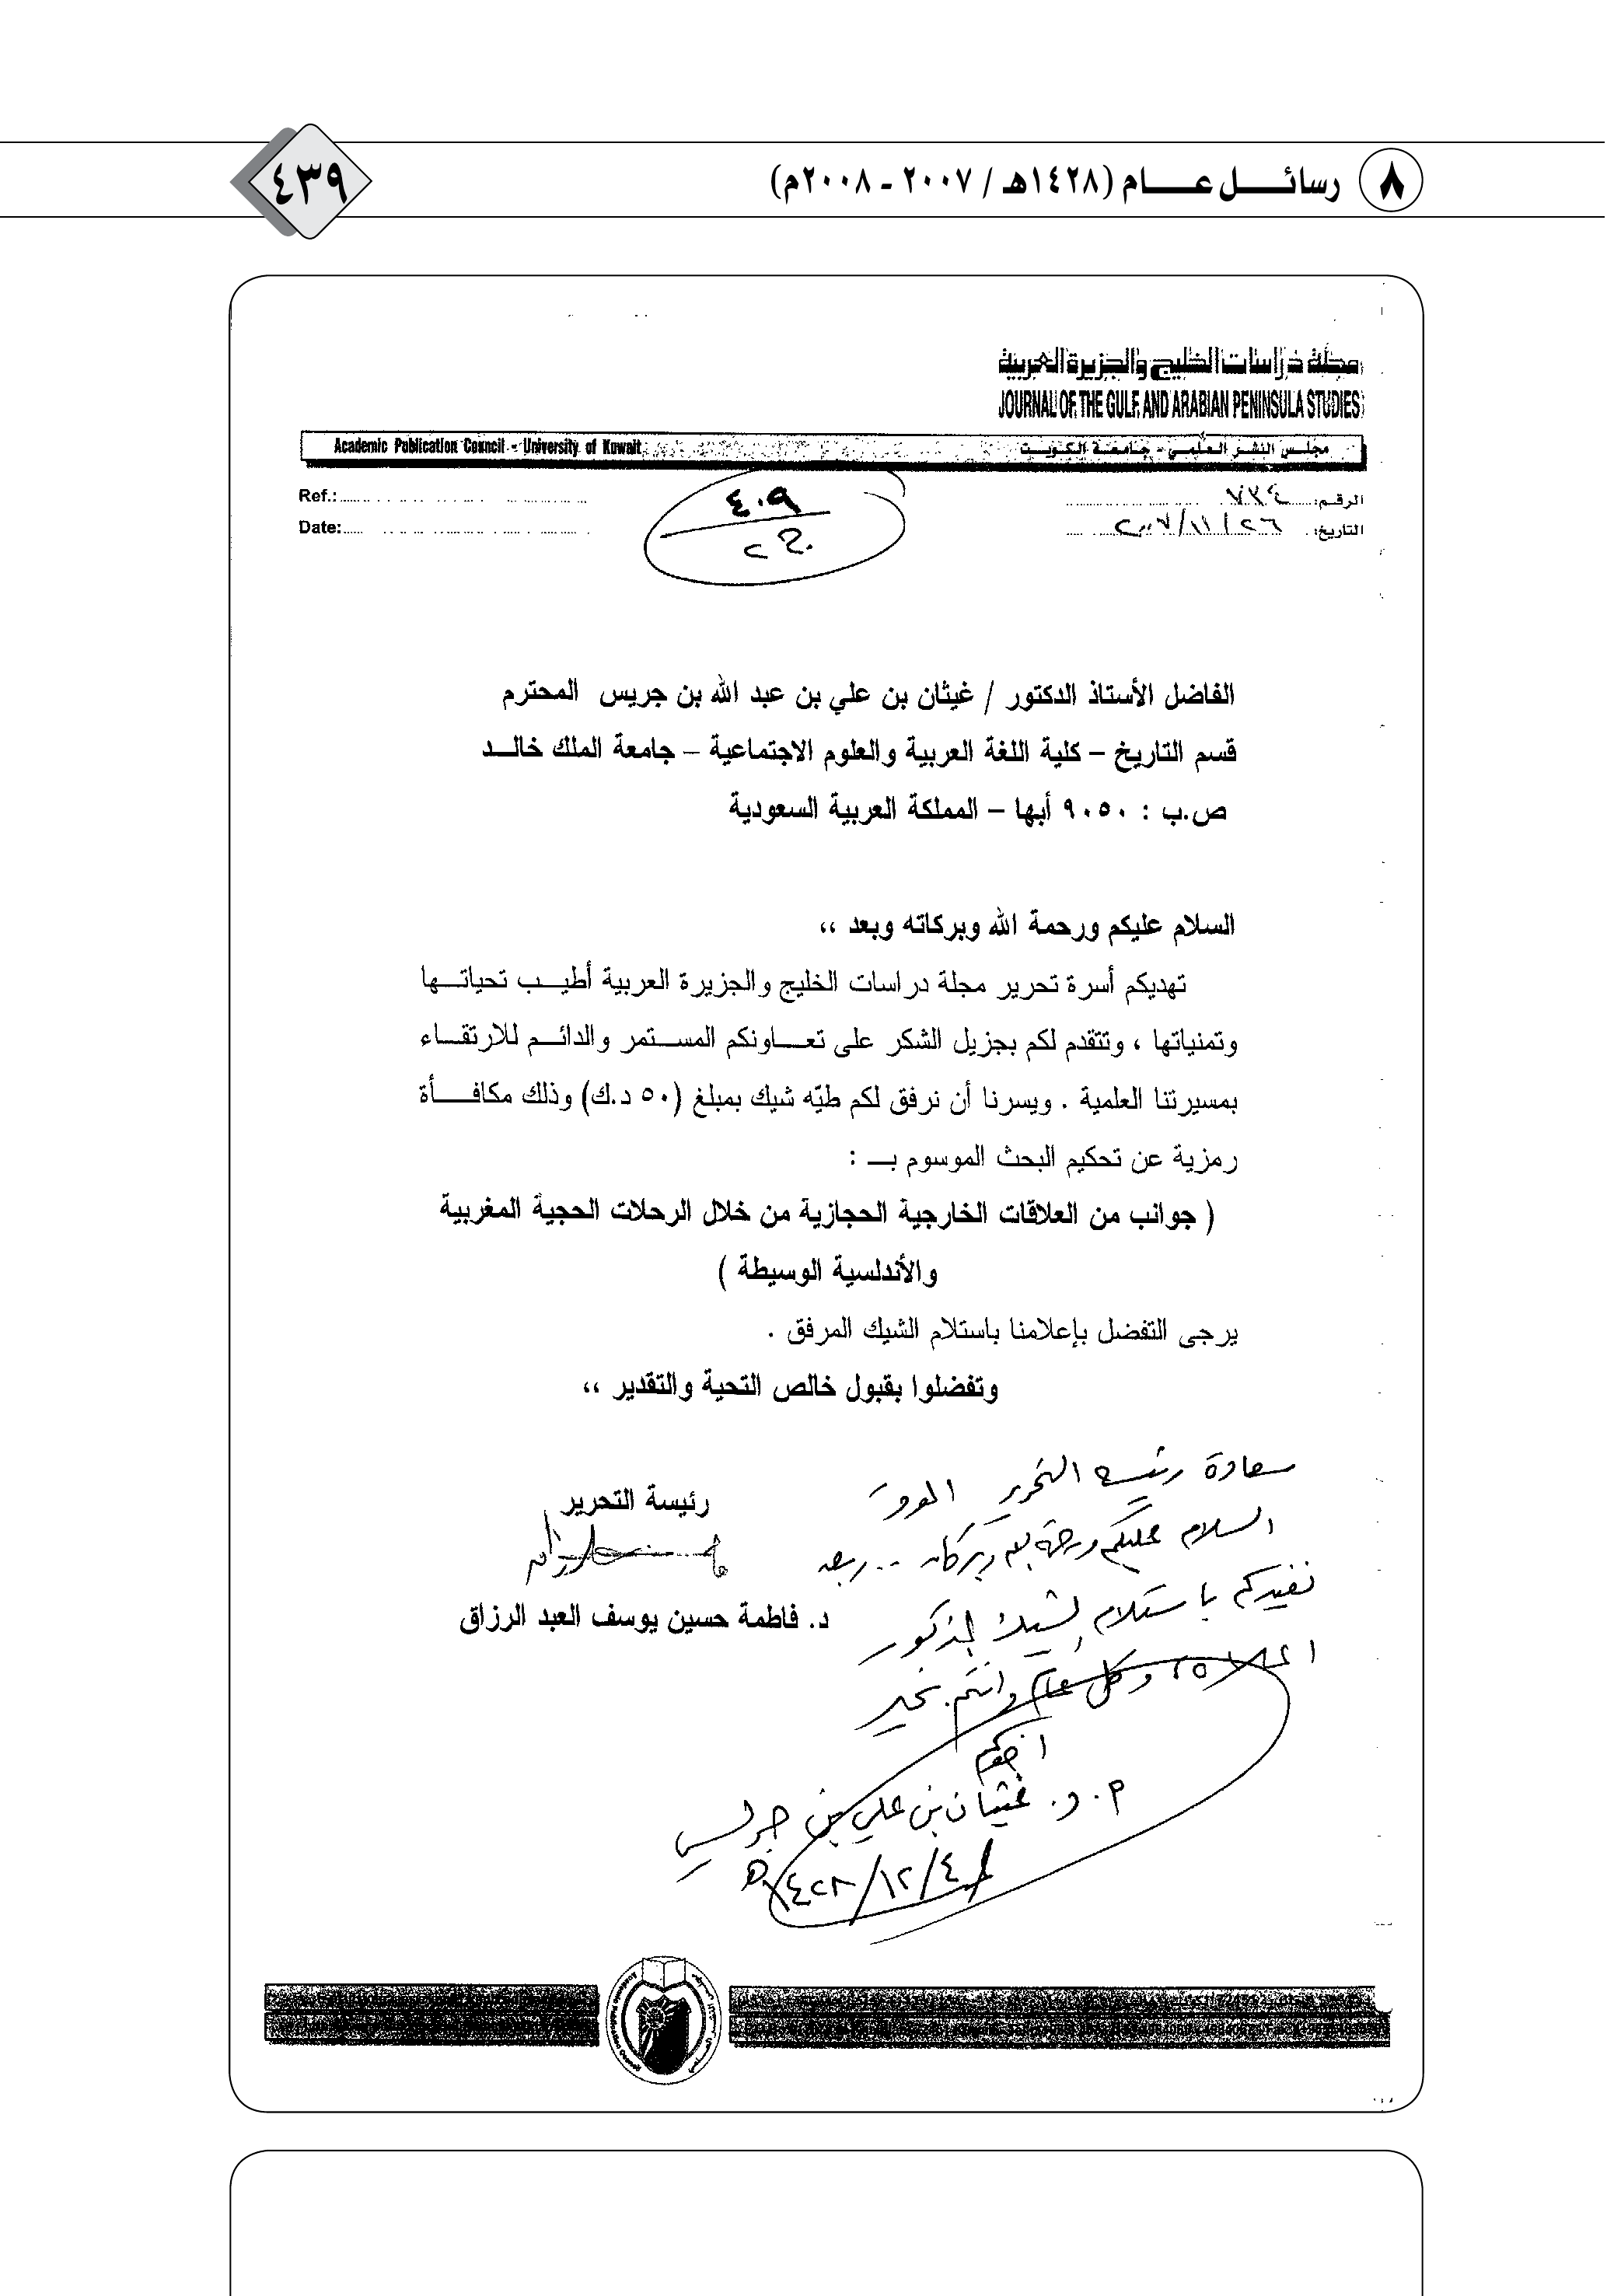 ٨ رسائــــل عــــــام (١٤٢٨هـ / ٢٠٠٧ ـ ٢٠٠٨م)
٤٣٩
مجلة دراسات الخليج والجزيرة العربية
JOURNAL OF THE GULF AND ARABIAN PENINSULA STUDIES
مجلس النشر العلمي - جامعة الكويت
Academic Publication Council - University of Kuwait
الرقم: ٧٣٤
Ref.:
التاريخ: ٢٠٠٧/١١/٢٦
Date:
٤٠٩
الفاضل الأستاذ الدكتور / غيثان بن علي بن عبد الله بن جريس المحترم
قسم التاريخ – كلية اللغة العربية والعلوم الاجتماعية – جامعة الملك خالــد
ص.ب : ٩٠٥٠ أبها – المملكة العربية السعودية
السلام عليكم ورحمة الله وبركاته وبعد ،،
تهديكم أسرة تحرير مجلة دراسات الخليج والجزيرة العربية أطيــب تحياتــها
وتمنياتها ، وتتقدم لكم بجزيل الشكر على تعـــاونكم المســتمر والدائــم للارتقــاء
بمسيرتنا العلمية . ويسرنا أن نرفق لكم طيّه شيك بمبلغ (٥٠ د.ك) وذلك مكافـــأة
رمزية عن تحكيم البحث الموسوم بــ :
( جوانب من العلاقات الخارجية الحجازية من خلال الرحلات الحجية المغربية
والأندلسية الوسيطة )
يرجى التفضل بإعلامنا باستلام الشيك المرفق .
وتفضلوا بقبول خالص التحية والتقدير ،،
رئيسة التحرير
د. فاطمة حسين يوسف العبد الرزاق
سعادة رئيسة التحرير الموقر
السلام عليكم ورحمة الله وبركاته .. وبعد
نفيدكم باستلام الشيك المذكور
اعلاه، وكل عام وانتم بخير
اخوكم
أ.د. غيثان بن علي بن جريس
١٤٢٨/١٢/٤هـ